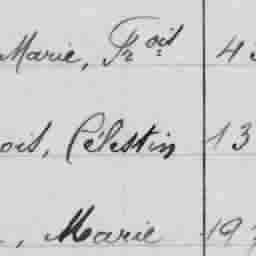 Marie, Frois 43
ois, Célestin 13
, Marie 197